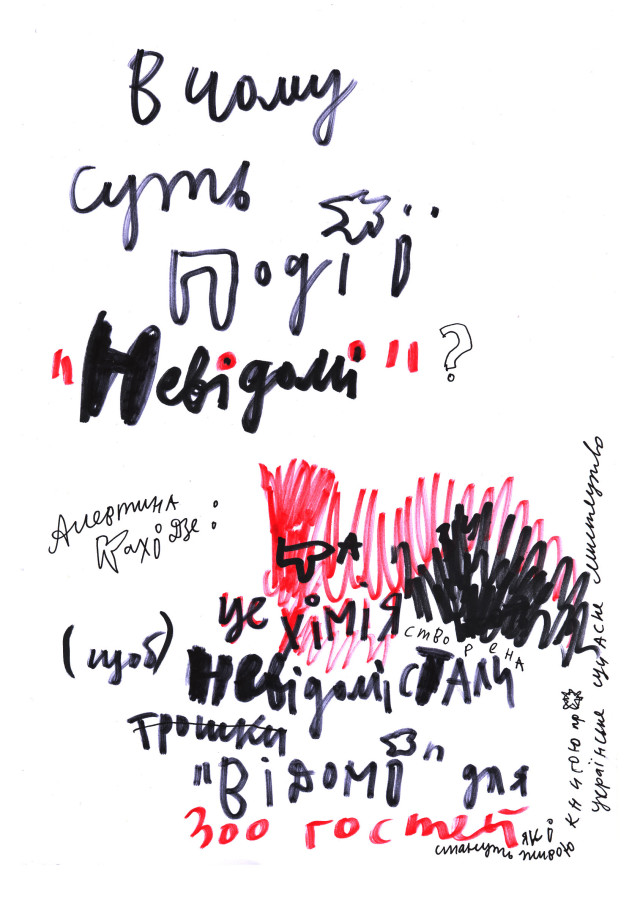 В чому
суть
події
"Невідомі"?
Алевтина
Кахідзе:
Ця
це хімія
створена
(щоб)
невідомі стали
трошки
"відомі" для
300 гостей
які
стануть живою
книгою про
українське сучасне мистецтво